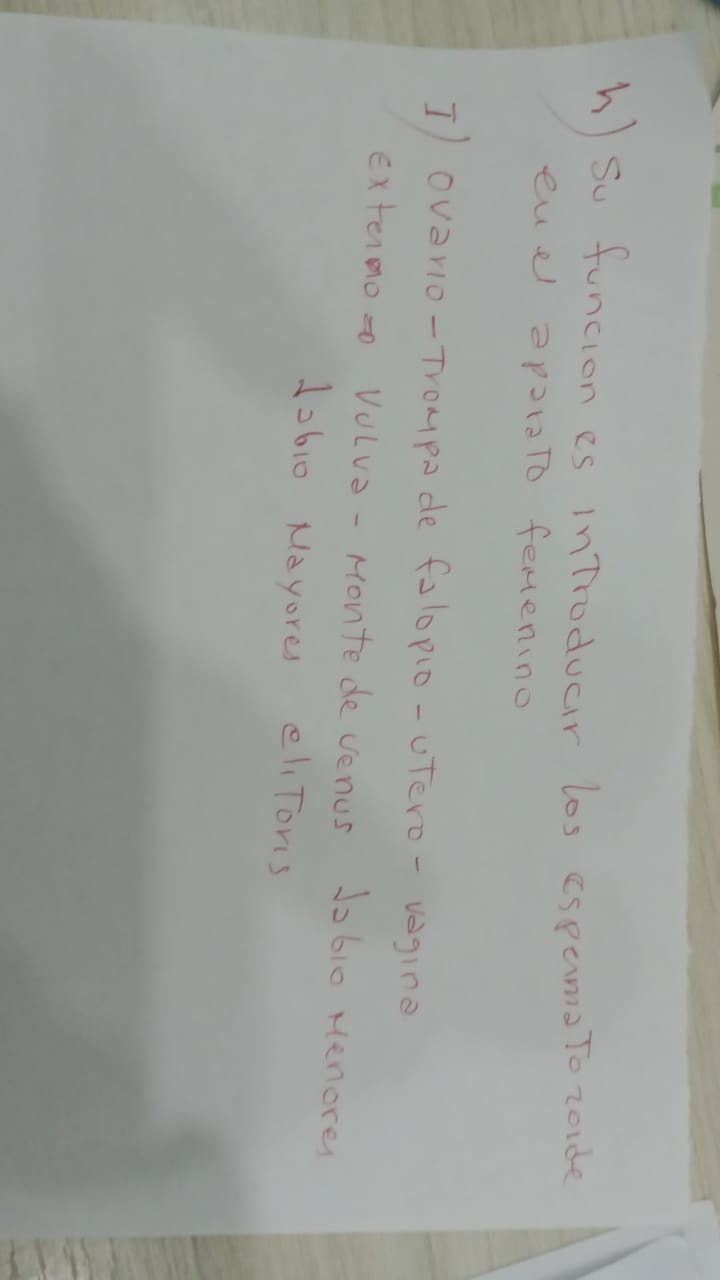 h) Su funcion es introducir los espermatozoide
en el aparato femenino
I) Ovario - Trompa de falopio - utero - vagina
externo => Vulva - Monte de venus labio Menores
labio Mayores clitoris